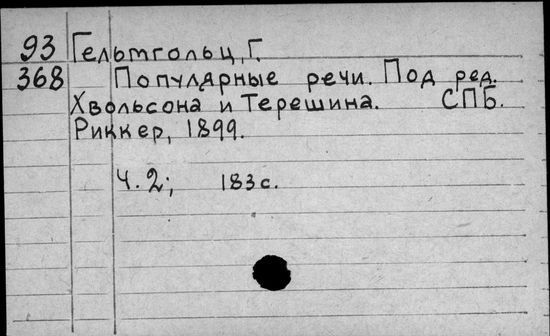 93 Гельмгольц, Г.
368 Популярные речи. Под ред.
Хвольсона и Терешина. СПБ.
Риккер, 1899.
Ч. 2; 183 с.